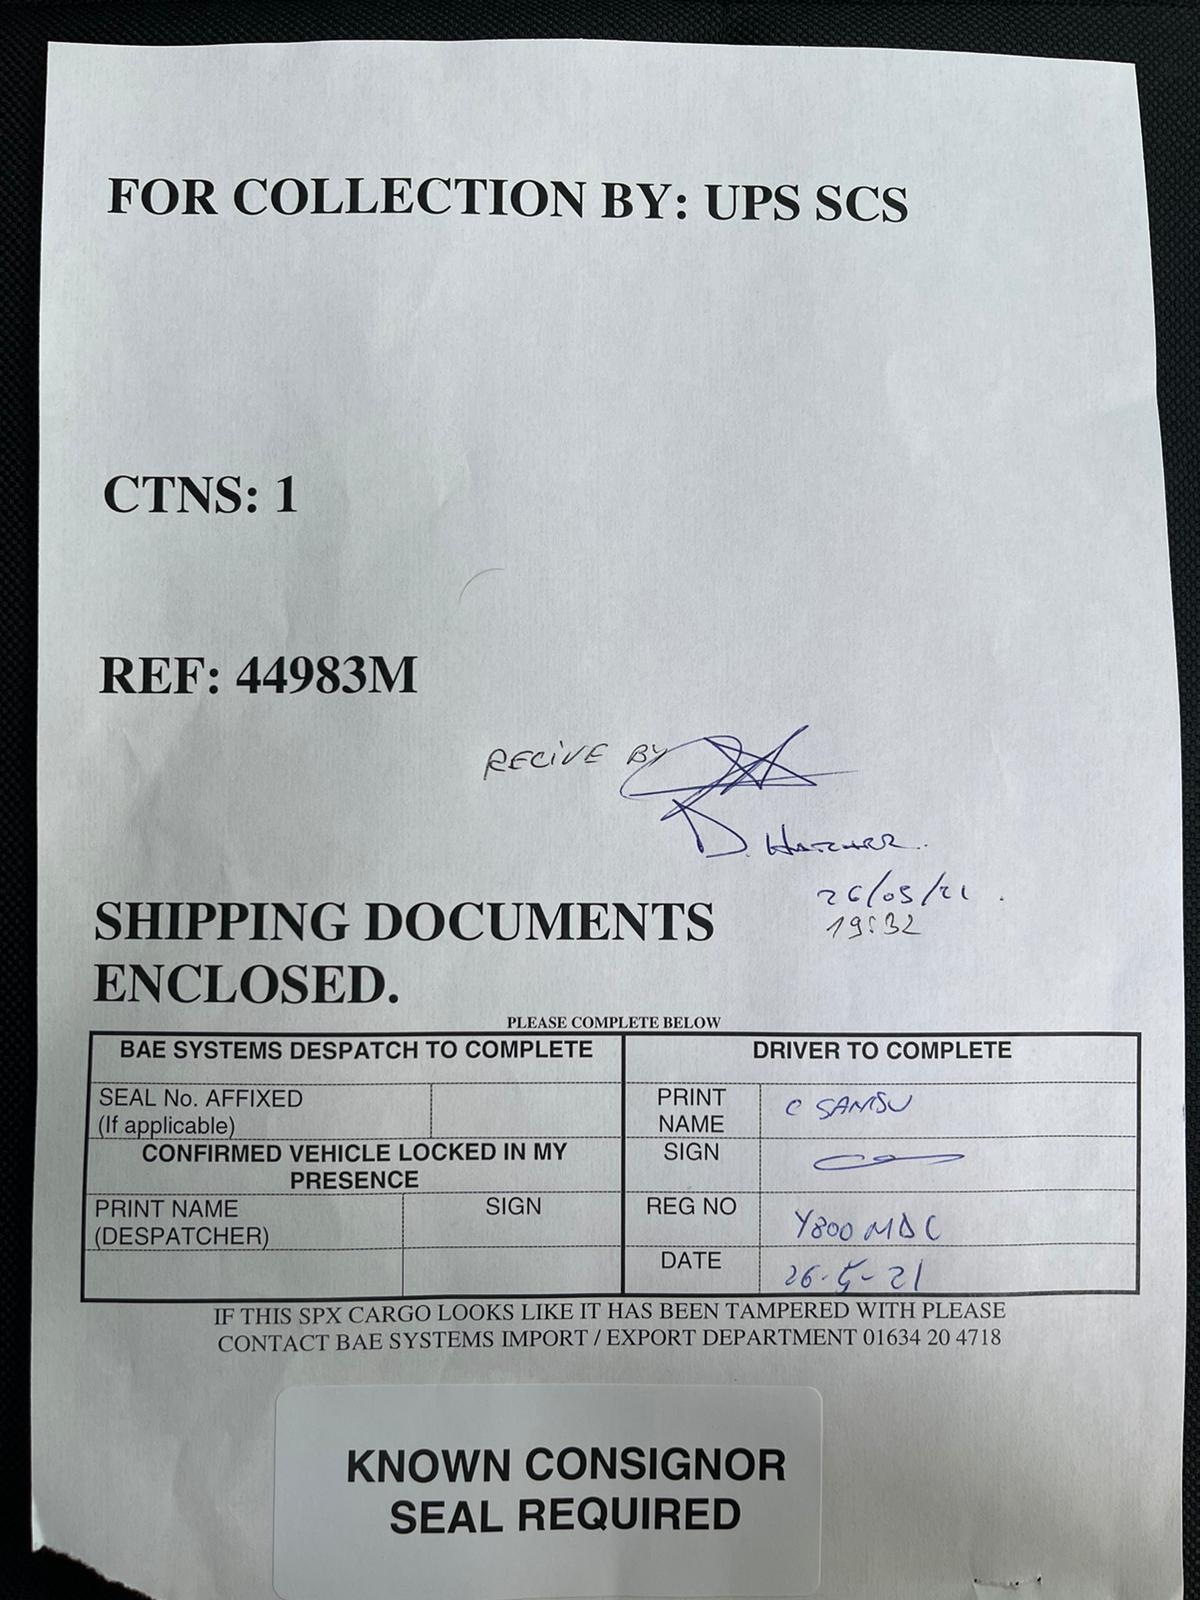 FOR COLLECTION BY: UPS SCS
CTNS: 1
REF: 44983M
RECIVE BY
D. HATCHER.
26/05/21.
19:32
SHIPPING DOCUMENTS
ENCLOSED.
PLEASE COMPLETE BELOW
BAE SYSTEMS DESPATCH TO COMPLETE
SEAL No. AFFIXED
(If applicable)
CONFIRMED VEHICLE LOCKED IN MY
PRESENCE
PRINT NAME
(DESPATCHER)
SIGN
DRIVER TO COMPLETE
PRINT
NAME
C SAMSU
SIGN
REG NO
Y800 MDC
DATE
26-5-21
IF THIS SPX CARGO LOOKS LIKE IT HAS BEEN TAMPERED WITH PLEASE
CONTACT BAE SYSTEMS IMPORT / EXPORT DEPARTMENT 01634 20 4718
KNOWN CONSIGNOR
SEAL REQUIRED